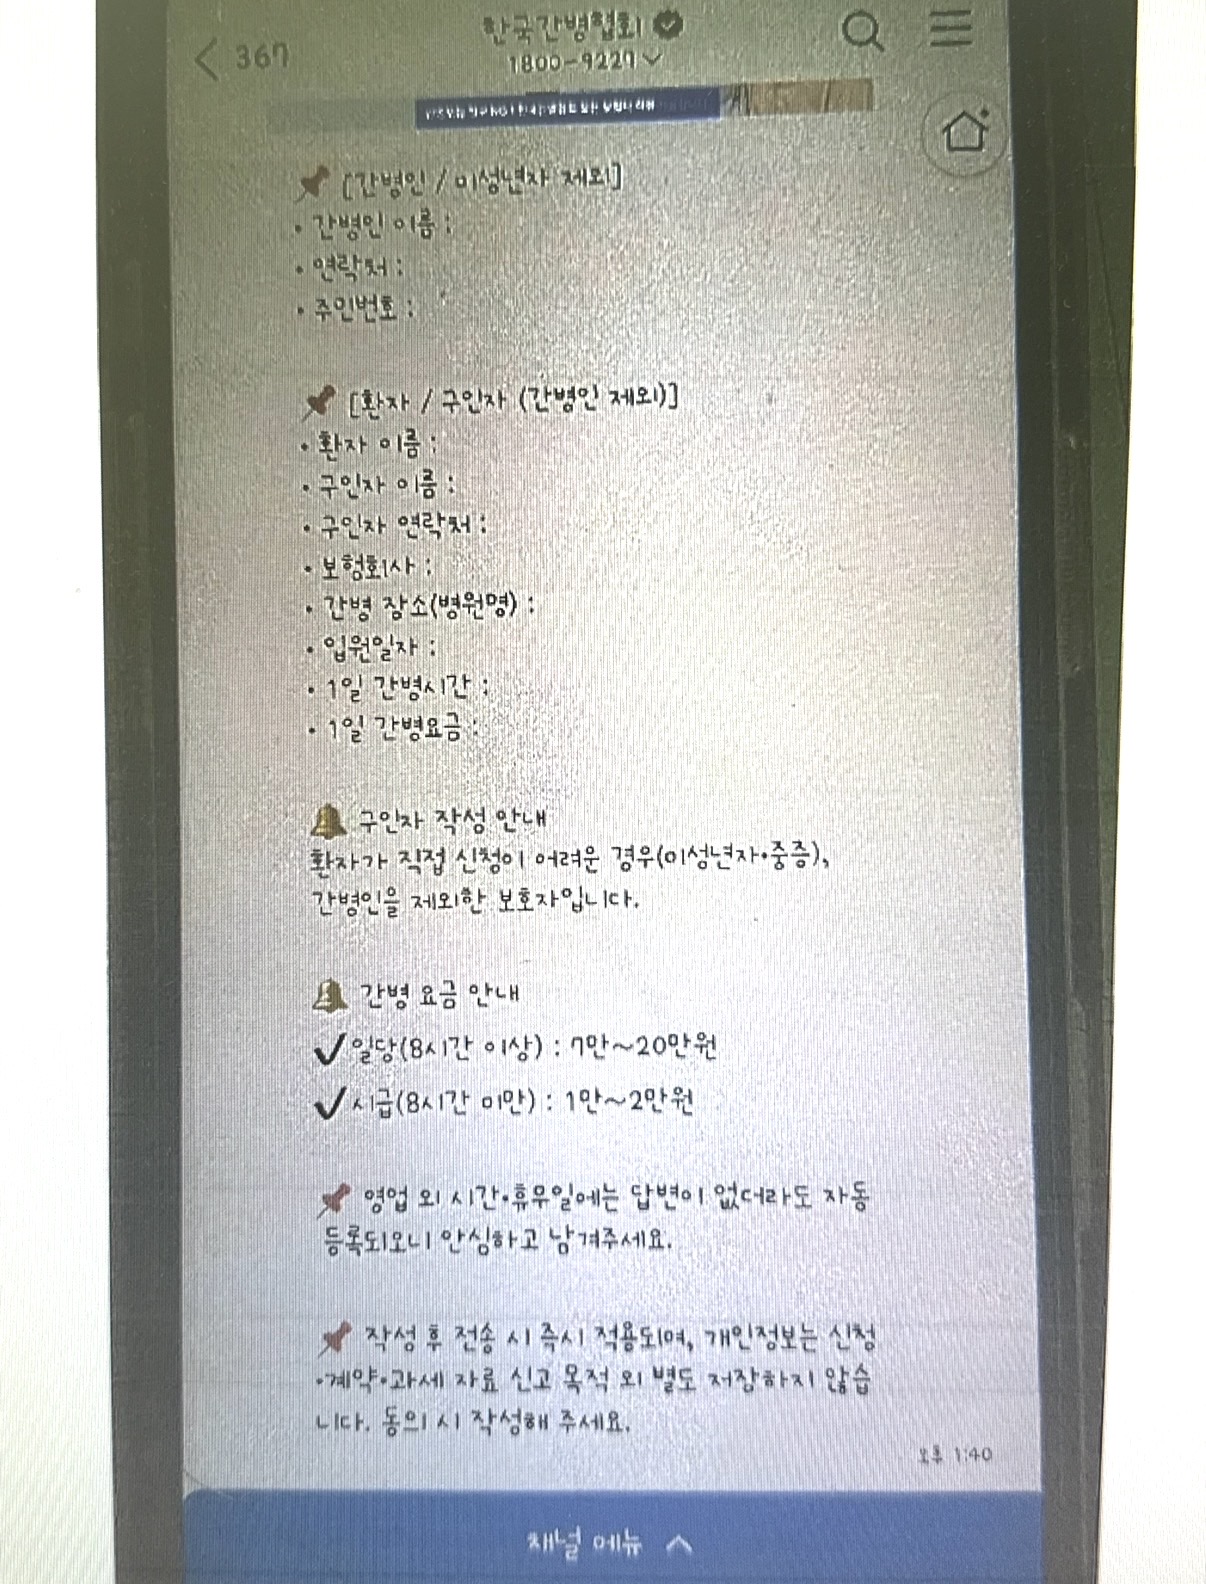 367
한국간병협회
1800-9227
[간병인 / 미성년자 제외]
• 간병인 이름 :
• 연락처 :
• 주민번호 :
[환자 / 구인자 (간병인 제외)]
• 환자 이름 :
• 구인자 이름 :
• 구인자 연락처 :
• 보험회사 :
• 간병 장소(병원명) :
• 입원일자 :
• 1일 간병시간 :
• 1일 간병요금 :
구인자 작성 안내
환자가 직접 신청이 어려운 경우(미성년자•중증),
간병인을 제외한 보호자입니다.
간병 요금 안내
✓일당(8시간 이상) : 7만~20만원
✓시급(8시간 미만) : 1만~2만원
영업 외 시간•휴무일에는 답변이 없더라도 자동
등록되오니 안심하고 남겨주세요.
작성 후 전송 시 즉시 적용되며, 개인정보는 신청
•계약•과세 자료 신고 목적 외 별도 저장하지 않습
니다. 동의 시 작성해 주세요.
오후 1:40
채널 메뉴